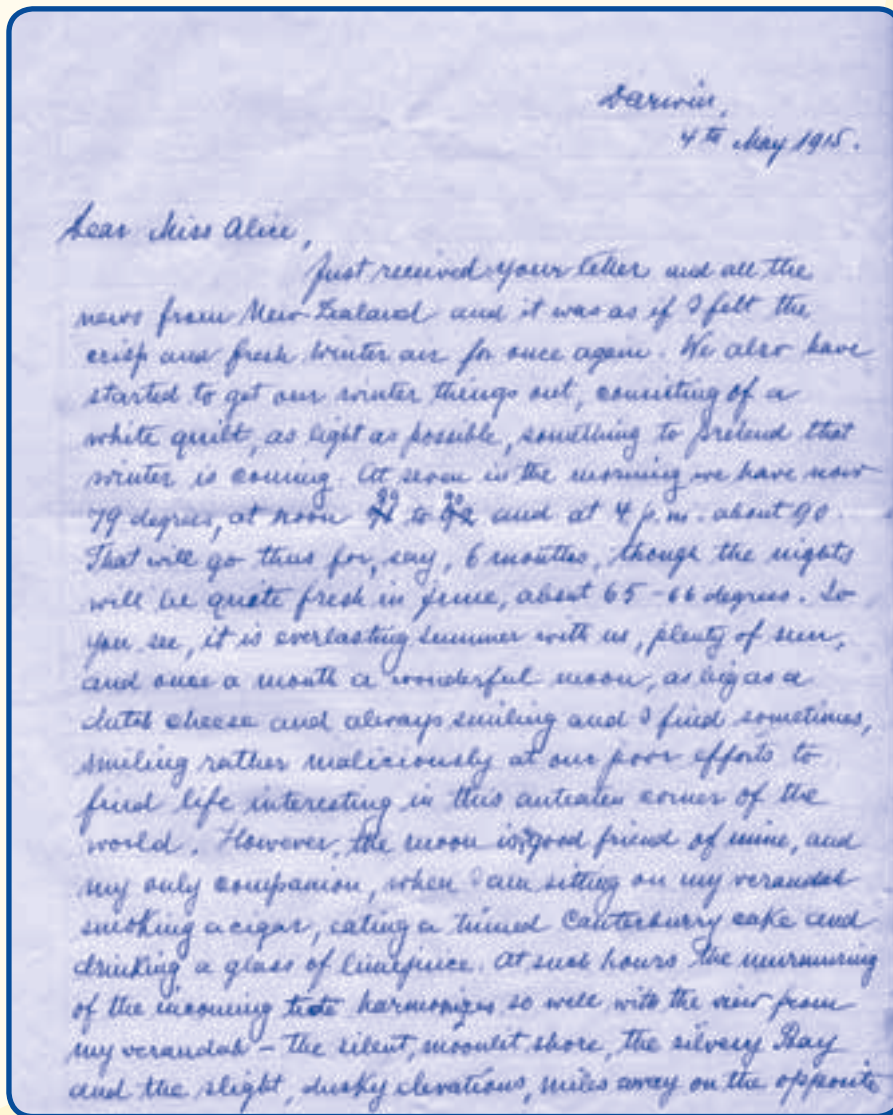 Darwin,
4th May 1915.
Dear Miss Alice,
Just received your letter and all the
news from New Zealand and it was as if I felt the
crisp and fresh winter air for once again. We also have
started to get our winter things out, consisting of a
white quilt, as light as possible, something to pretend that
winter is coming. At seven in the morning we have now
79 degrees, at noon 89 to 90 and at 4 p.m. about 90.
That will go thus for, say, 6 months, though the nights
will be quite fresh in June, about 65-66 degrees. So
you see, it is everlasting summer with us, plenty of sun,
and once a month a wonderful moon, as big as a
dutch cheese and always smiling and I find sometimes,
smiling rather maliciously at our poor efforts to
find life interesting in this anteaten corner of the
world. However, the moon is good friend of mine, and
my only companion, when I am sitting on my verandah
smoking a cigar, eating a tinned Canterburry cake and
drinking a glass of limejuice. At such hours the murmuring
of the incoming tide harmonizes so well with the view from
my verandah - the silent, moonlit shore, the silvery Bay
and the slight, dusky elevations, miles away on the opposite